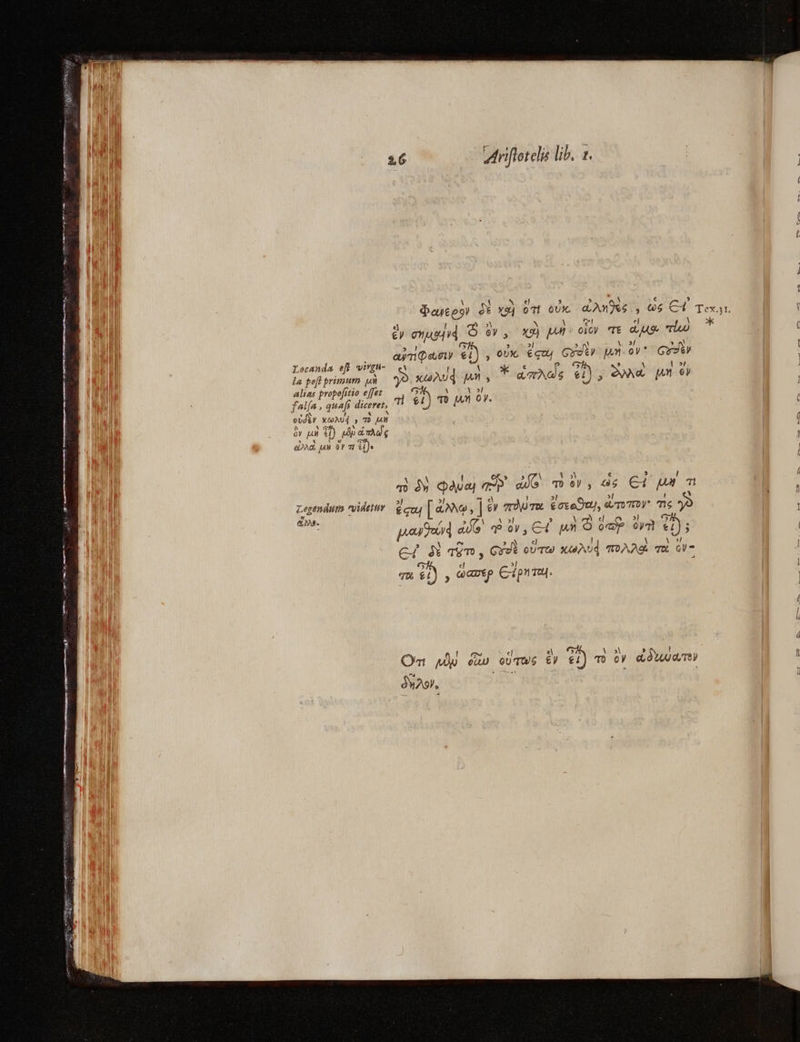 26 Aristotelis lib. 1.
Φανερὸν δὲ καὶ ὅτι οὐκ ἀληθὲς, ὡς εἰ Tex. 31.
ἓν σημαίνει τὸ ὂν, καὶ μὴ οἷόν τε ἅμα τὴν *
ἀντίφασιν εἶναι, οὐκ ἔσται οὐδὲν μὴ ὄν· οὐδὲν
Locanda est virgu-
la post primum μὴ γὰρ κωλύει μὴ, * ἁπλῶς εἶναι, ἀλλὰ μὴ ὄν
alias propositio esset
falsa, quasi diceret, τὶ εἶναι τὸ μὴ ὄν.
οὐδὲν κωλύει, τὸ μὴ
ὂν μὴ εἶναι μὲν ἁπλῶς
ἀλλὰ μὴ ὄν τι εἶναι.
τὸ δὴ φάναι παρ' αὐτὸ τὸ ὂν, ὡς εἰ μή τι
Legendum videtur ἔσται [ἄλλο,] ἓν πάντα ἔσεσθαι, ἄτοπον· τίς γὰρ
μανθάνει αὐτὸ τὸ ὂν, εἰ μὴ τὸ ὅπερ ὄν τι εἶναι;
εἰ δὲ τοῦτο, οὐδὲν οὕτω κωλύει πολλὰ τὰ ὄν-
τα εἶναι, ὥσπερ εἴρηται.
Ὅτι μὲν οὖν οὕτως ἓν εἶναι τὸ ὂν ἀδύνατον
δῆλον.